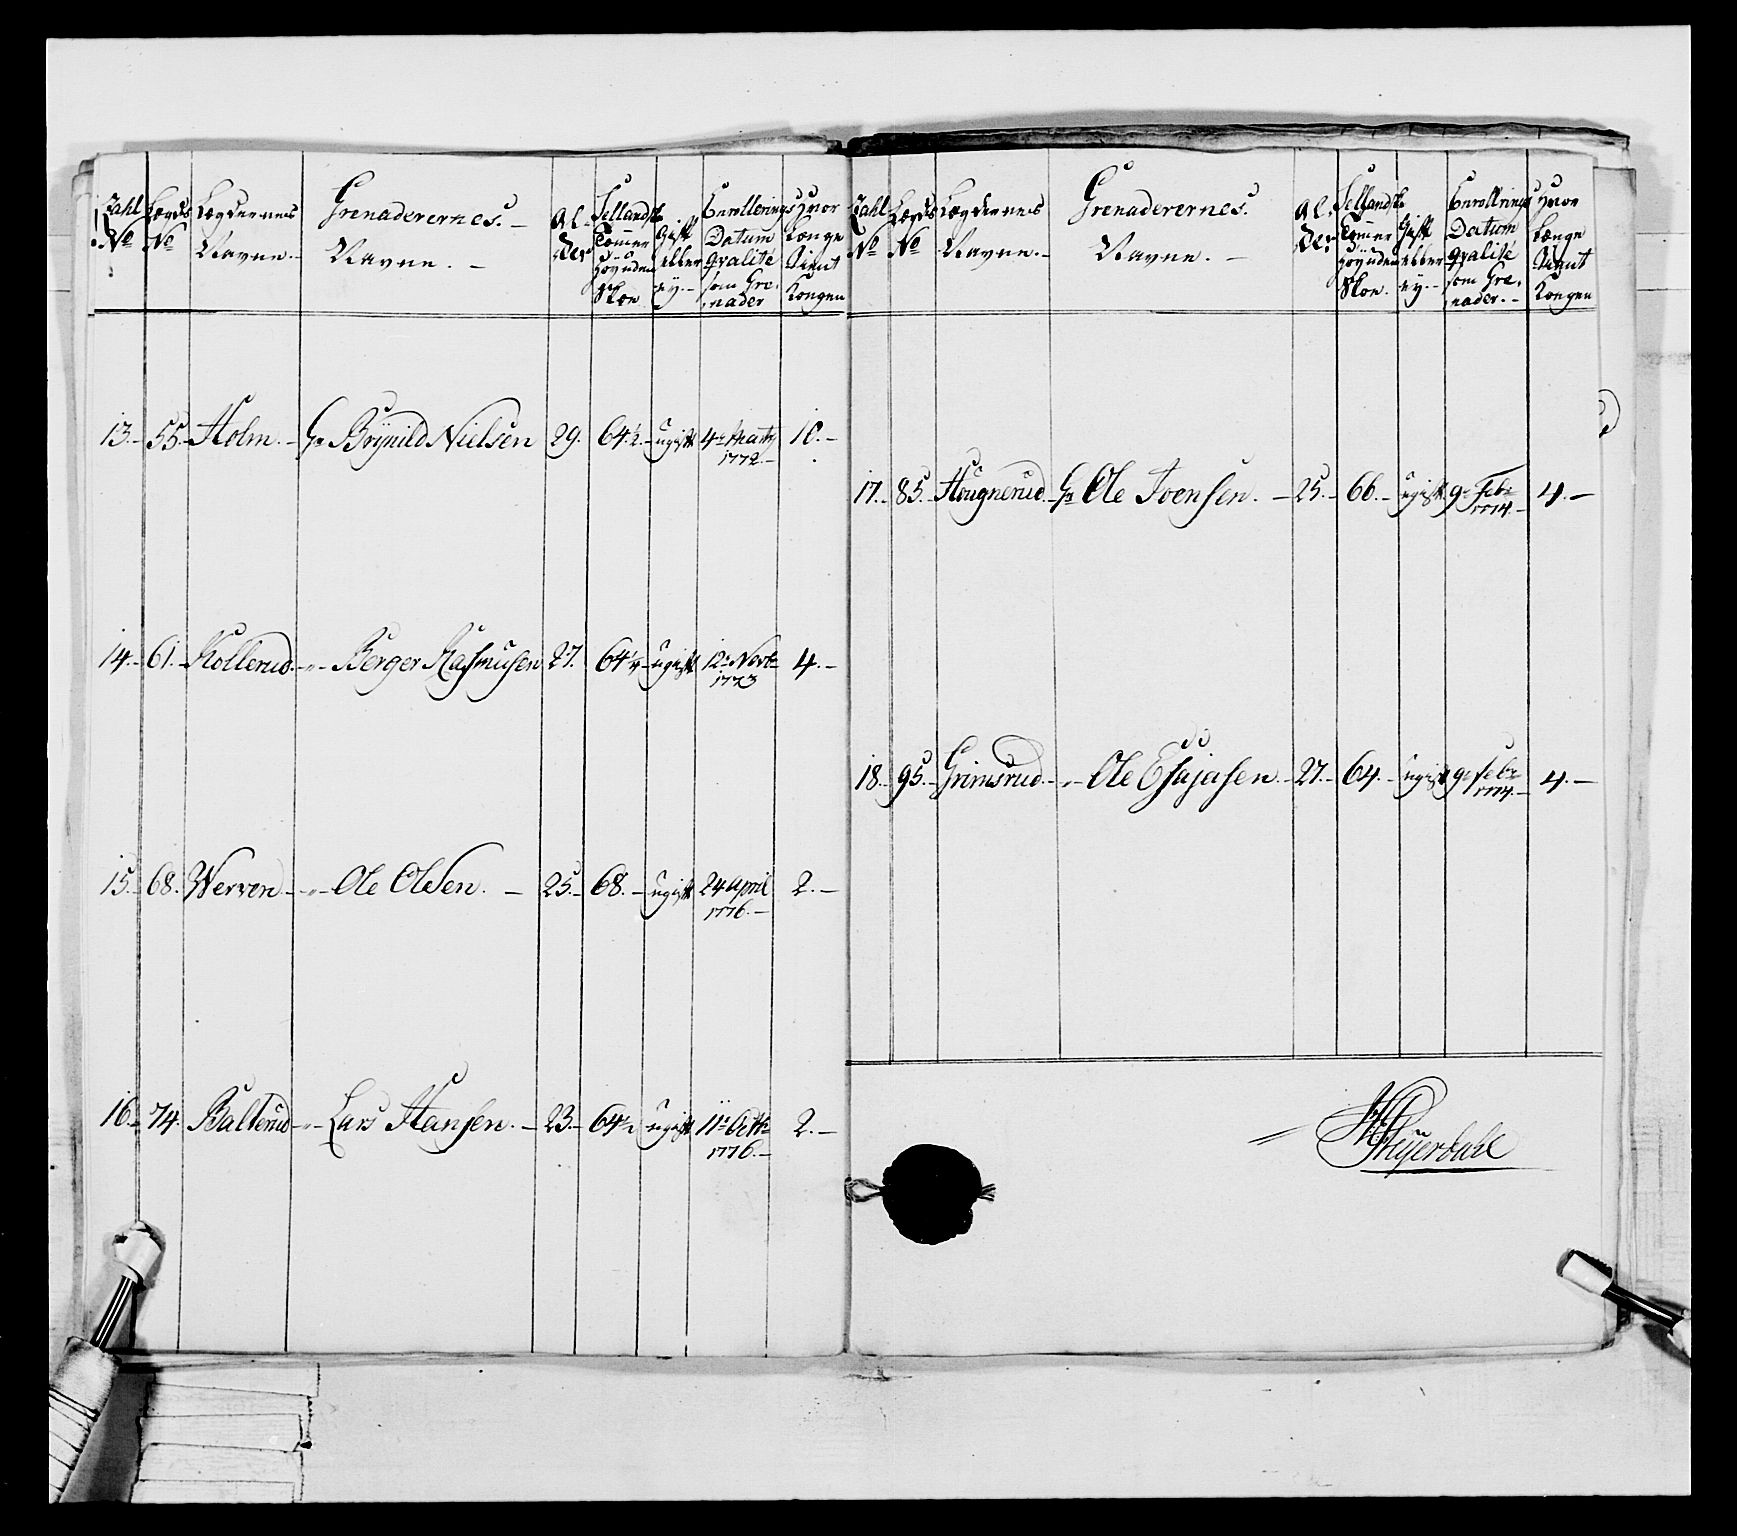 Zahl No
Lægds No
Lægdernes Navne.
Grenaderernes. Navne.
Al- der
Sellandsk Tommer Høy uden Skoe
Gift eller ey.
Enrollerings Datum qvalité som Gre- nader
Hvor længe tient Kongen
13. 55. Holm. Gr Brynild Nielsen 29. 64½. ugift 4de Marty 1772. 10.
14. 61. Kollerud " Berger Rasmusen 27. 64¼ ugift 12te Novbr 1773 4.
15. 68. Werven " Ole Olesen. 25. 68. ugift 24 April 1776. 2.
16. 74. Balterud " Lars Hansen. 23. 64½ ugift 11te Octbr 1776. 2.
Zahl No
Lægds No
Lægdernes Navne.
Grenaderernes. Navne.
Al- der
Sellandsk Tommer Høy uden Skoe.
Gift eller ey.
Enrollerings Datum qvalité som Gre- nader.
Hvor længe tient Kongen
17. 85. Hougnerud. Gr Ole Joensen. 25. 66. ugift 9de Febr 1774. 4.
18. 95. Grimsrud. " Ole Esajasen. 27. 64. ugift 9de Febr 1774. 4.
Heyerdahl